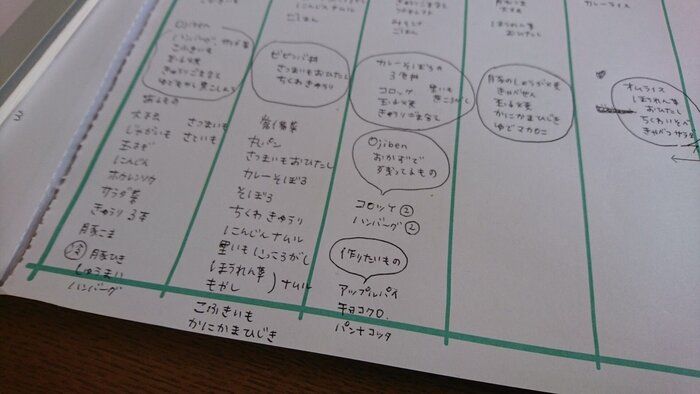 にんじんナムル
ごはん
みそしる
ごはん
ほうれん草
おひたし
カレーライス
Ojiben
ハンバーグ、サラダ菜
こふきいも
玉子焼
きゅうりごまあえ
ビビンバ丼
さつまいもおひたし
ちくわきゅうり
カレーそぼろの
3色丼
コロッケ
玉子焼
きゅうりごまあえ
里いも
豚肉のしょうが焼
きゃべせん
玉子焼
かにかまひじき
ゆでマカロニ
オムライス
ほうれん草
おひたし
ちくわいそべ
きゃべつサラダ
あるもの
大根
じゃがいも
玉ねぎ
にんじん
ホウレンソウ
サラダ菜
きゅうり3本
豚こま
冷 豚ひき
しゅうまい
ハンバーグ
さつまいも
さといも
常備菜
丸パン
さつまいもおひたし
カレーそぼろ
そぼろ
ちくわきゅうり
にんじんナムル
里いもにっころがし
ほうれん草
もやし
)ナムル
こふきいも
かにかまひじき
Ojiben
おかずで
残ってるもの
コロッケ②
ハンバーグ②
作りたいもの
アップルパイ
チョコクロ
パンナコッタ
3